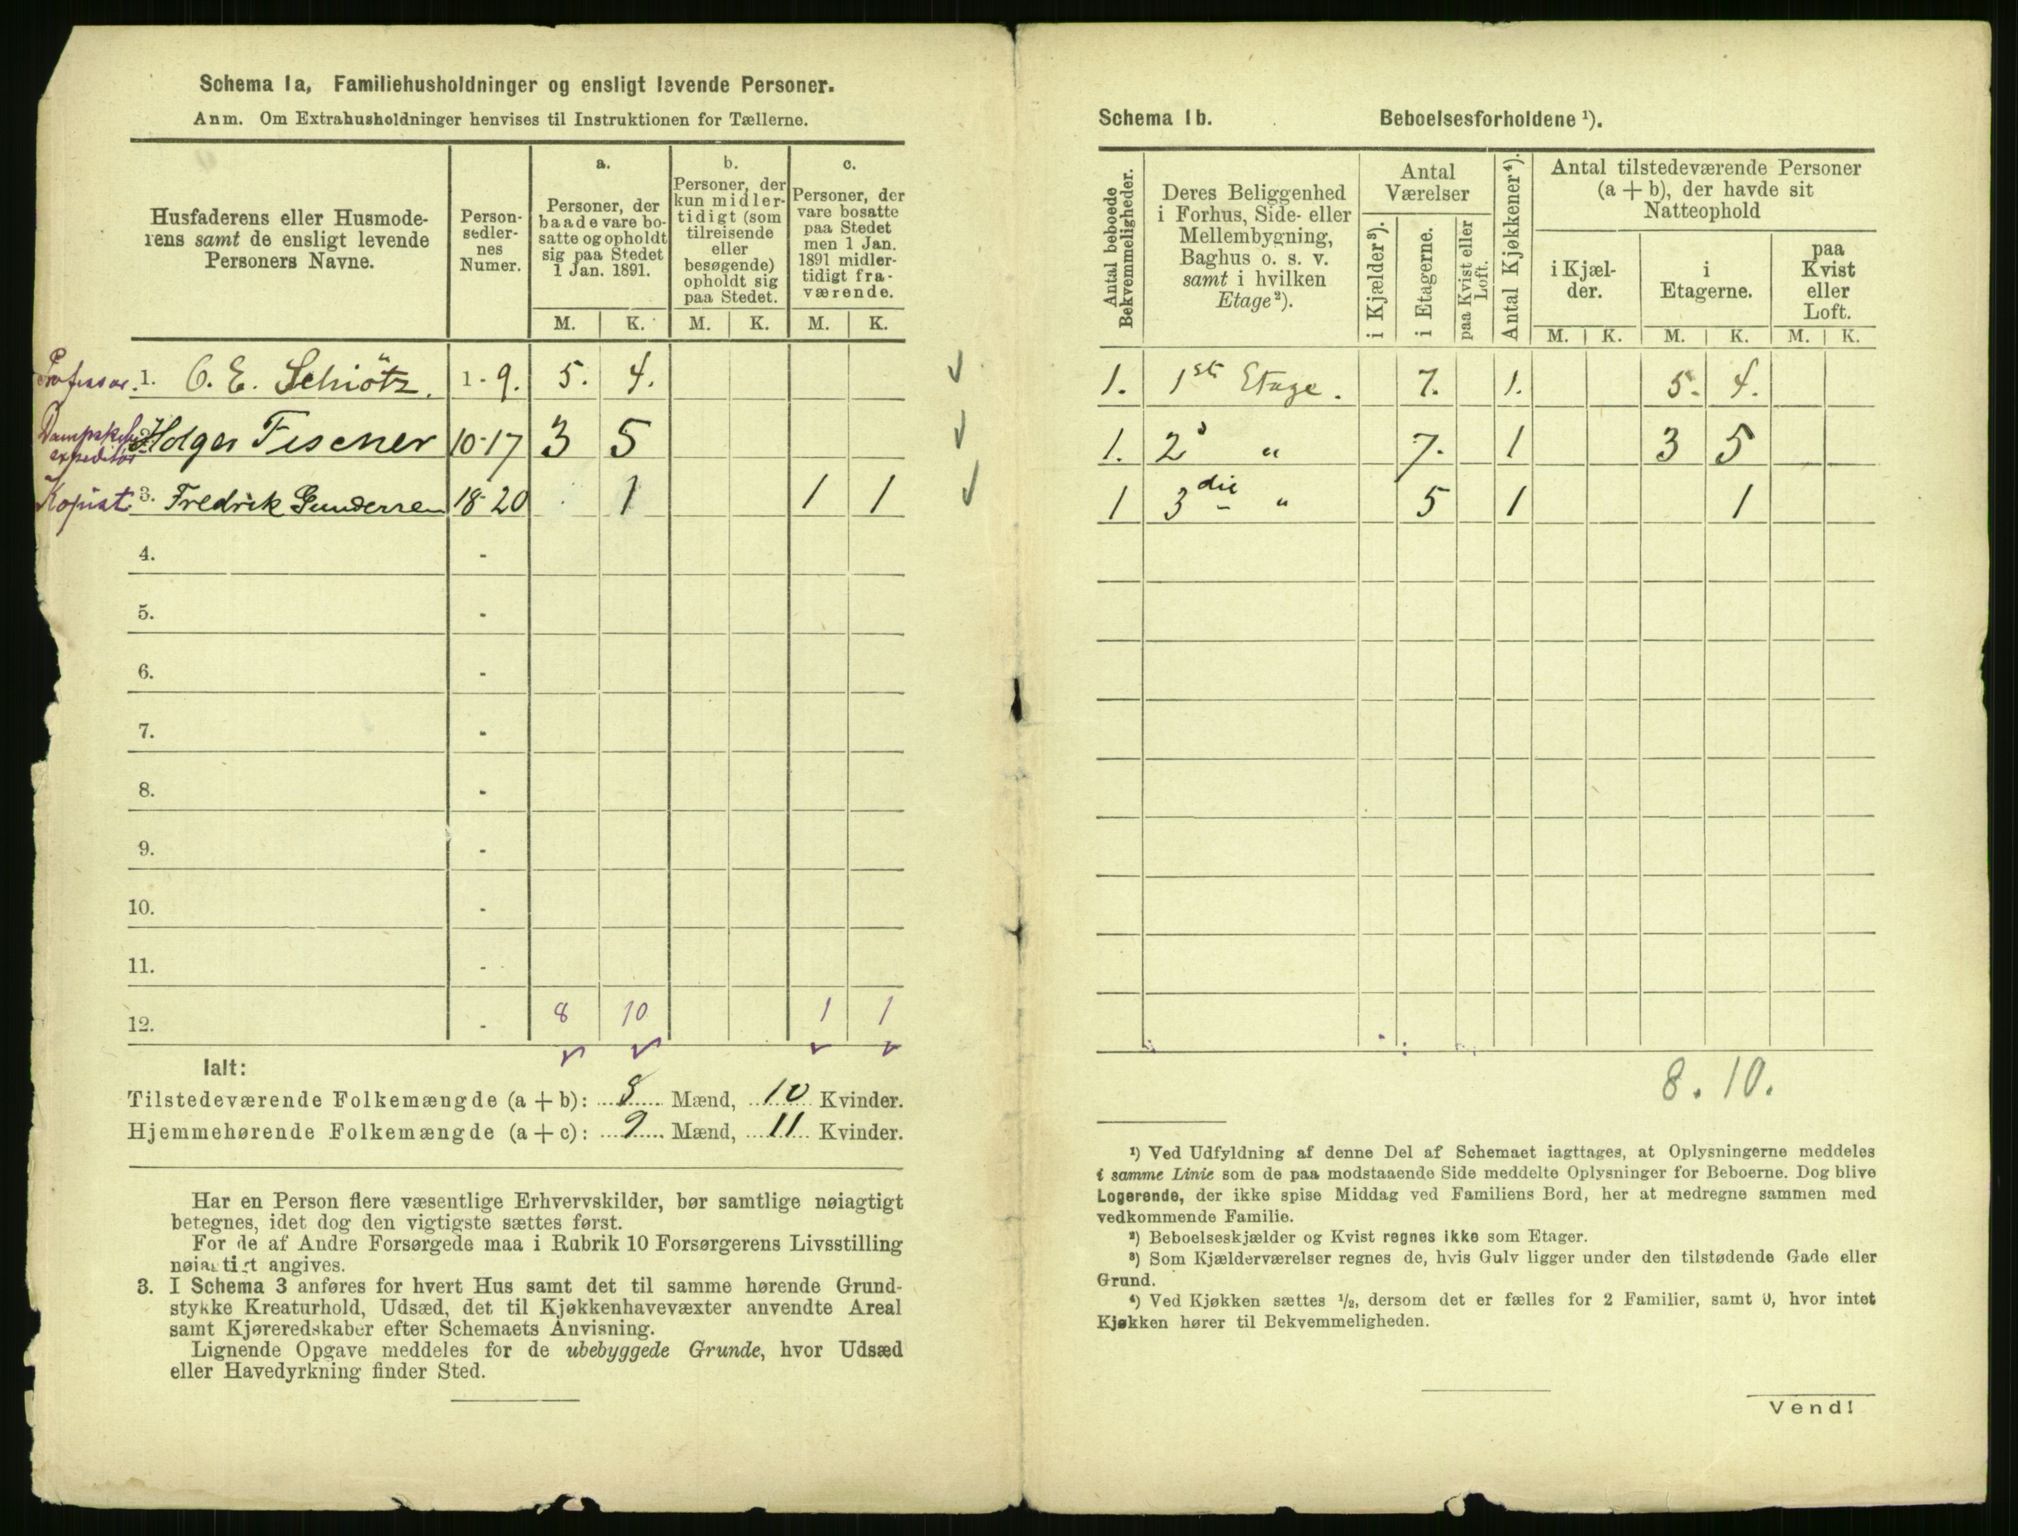 Schema 1a, Familiehusholdninger og ensligt levende Personer.
Anm. Om Extrahusholdninger henvises til Instruktionen for Tællerne.
Husfaderens eller Husmode-
rens samt de ensligt levende
Personers Navne.
Person-
sedler-
nes
Numer.
a.
Personer, der
baade vare bo-
satte og opholdt
sig paa Stedet
1 Jan. 1891.
b.
Personer, der
kun midler-
tidigt (som
tilreisende
eller
besøgende)
opholdt sig
paa Stedet.
c.
Personer, der
vare bosatte
paa Stedet
men 1 Jan.
1891 midler-
tidigt fra-
værende.
M. K. M. K. M. K.
Professor. 1. O. E. Schiötz. 1-9. 5. 4.
Dampskibs
expeditør Holger Fischer 10-17 3 5
Kopist 3. Fredrik Gundersen 18-20 1 1 1
4. -
5. -
6. -
7. -
8. -
9. -
10. -
11. -
12. - 8 10 1 1
Ialt:
Tilstedeværende Folkemængde (a + b): 8 Mænd, 10 Kvinder.
Hjemmehørende Folkemængde (a + c): 9 Mænd, 11 Kvinder.
Har en Person flere væsentlige Erhvervskilder, bør samtlige nøiagtigt
betegnes, idet dog den vigtigste sættes først.
For de af Andre Forsørgede maa i Rubrik 10 Forsørgerens Livsstilling
nøiagtigt angives.
3. I Schema 3 anføres for hvert Hus samt det til samme hørende Grund-
stykke Kreaturhold, Udsæd, det til Kjøkkenhavevæxter anvendte Areal
samt Kjøreredskaber efter Schemaets Anvisning.
Lignende Opgave meddeles for de ubebyggede Grunde, hvor Udsæd
eller Havedyrkning finder Sted.
Schema 1b. Beboelsesforholdene ¹).
Antal beboede
Bekvemmeligheder.
Deres Beliggenhed
i Forhus, Side- eller
Mellembygning,
Baghus o. s. v.
samt i hvilken
Etage²).
Antal
Værelser
i Kjælder³).
i Etagerne.
paa Kvist eller
Loft.
Antal Kjøkkener⁴).
Antal tilstedeværende Personer
(a + b), der havde sit
Natteophold
i Kjæl-
der.
i
Etagerne.
paa
Kvist
eller
Loft.
M. K. M. K. M. K.
1. 1ste Etage. 7. 1. 5. 4.
1. 2 " 7. 1 3 5
1 3die " 5 1 1
8. 10.
¹) Ved Udfyldning af denne Del af Schemaet iagttages, at Oplysningerne meddeles
i samme Linie som de paa modstaaende Side meddelte Oplysninger for Beboerne. Dog blive
Logerende, der ikke spise Middag ved Familiens Bord, her at medregne sammen med
vedkommende Familie.
²) Beboelseskjælder og Kvist regnes ikke som Etager.
³) Som Kjælderværelser regnes de, hvis Gulv ligger under den tilstødende Gade eller
Grund.
⁴) Ved Kjøkken sættes ½, dersom det er fælles for 2 Familier, samt 0, hvor intet
Kjøkken hører til Bekvemmeligheden.
Vend!